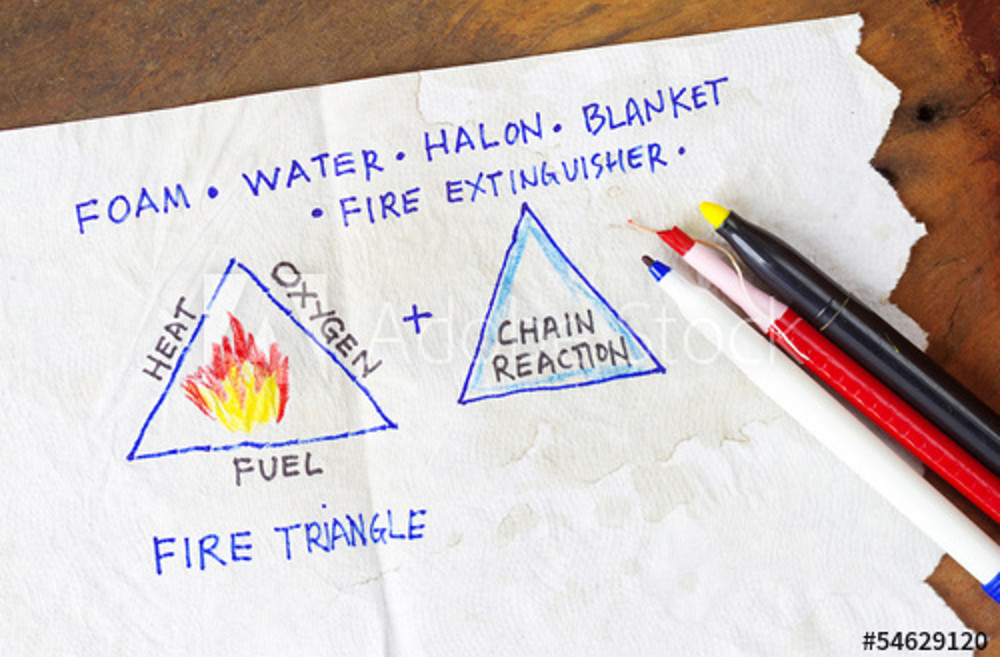 FOAM • WATER • HALON • BLANKET
• FIRE EXTINGUISHER •
HEAT
OXYGEN
FUEL
+
CHAIN
REACTION
FIRE TRIANGLE
Adobe Stock
#54629120